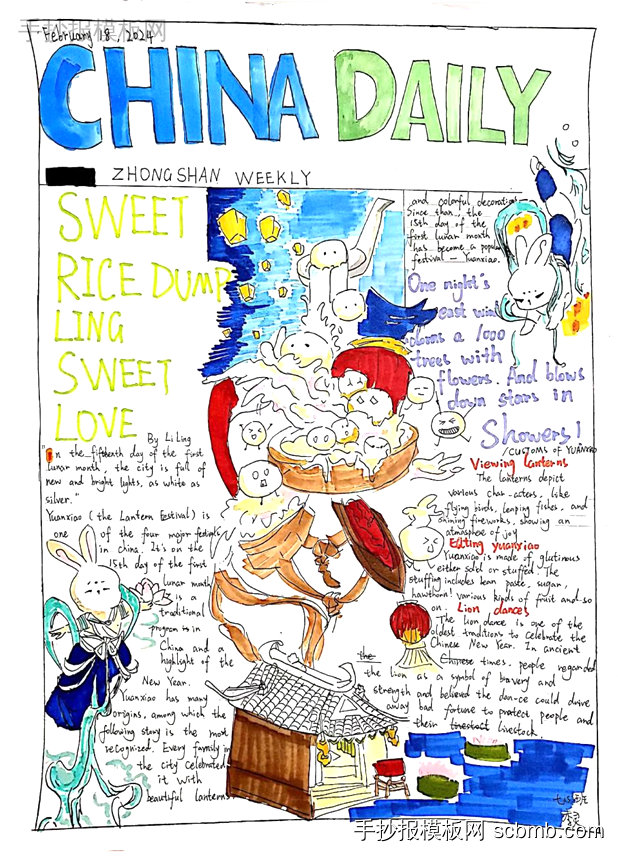 February 18, 2024
手抄报模板网
CHINA DAILY
ZHONGSHAN WEEKLY
SWEET
RICE DUMP
LING
SWEET
LOVE
By Li Ling
"In the fifteenth day of the first
lunar month, the city is full of
new and bright lights, as white as
silver."
Yuanxiao (the Lantern Festival) is
one of the four major festivals
in china. It's on the
15th day of the first
lunar month
is a
traditional
program in
China and a
highlight of the
New Year.
Yuanxiao has many
origins, among which the
following story is the most
recognized. Every family in
the city celebrated
it with
beautiful lanterns
and colorful decorations
Since than, the
15th day of the
first lunar month
has become a popular
festival — Yuanxiao.
One night's
east wind
dorns a 1000
trees with
flowers. And blows
down stars in
Showers!
/CUSTOMS OF YUANXIAO
Viewing lanterns
The lanterns depict
various char-acters, like
flying birds, leaping fishes, and
shining fireworks, showing an
atmosphere of joy
Eating yuanxiao
Yuanxiao is made of glutinous
either solid or stuffed. The
stuffing includes bean paste, sugar,
hawthorn! various kinds of fruit and so
on.
Lion dances
The lion dance is one of the
oldest traditions to celebrate the
Chinese New Year. In ancient
the Chinese times, people regarded
the lion as a symbol of bravery and
strength and believed the dan-ce could drive
away bad fortune to protect people and
their livestock.
手抄报模板网 scbmb.com